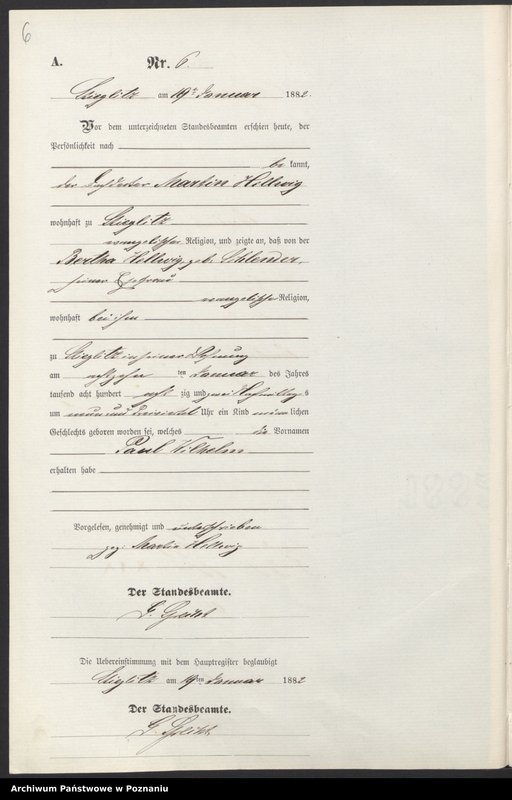 6
A. Nr. 6.
Stieglitz am 19ten Januar 1882.
Vor dem unterzeichneten Standesbeamten erschien heute, der
Persönlichkeit nach
be kannt,
der Martin Hellwig
wohnhaft zu Stieglitz
evangelischer Religion, und zeigte an, daß von der
Bertha Hellwig geb. Schlender,
seiner Ehefrau
evangelischer Religion,
wohnhaft bei ihm
zu Stieglitz in seiner Wohnung
am achtzehn ten Januar des Jahres
tausend acht hundert acht zig und zwei Nachmittag s
um neun und Uhr ein Kind männ lichen
Geschlechts geboren worden sei, welches die Vornamen
Paul Wilhelm
erhalten habe
Vorgelesen, genehmigt und unterschrieben
gez. Martin Hellwig
Der Standesbeamte.
G.
Die Uebereinstimmung mit dem Hauptregister beglaubigt
Stieglitz am 19ten Januar 1882
Der Standesbeamte.
G.
Archiwum Państwowe w Poznaniu